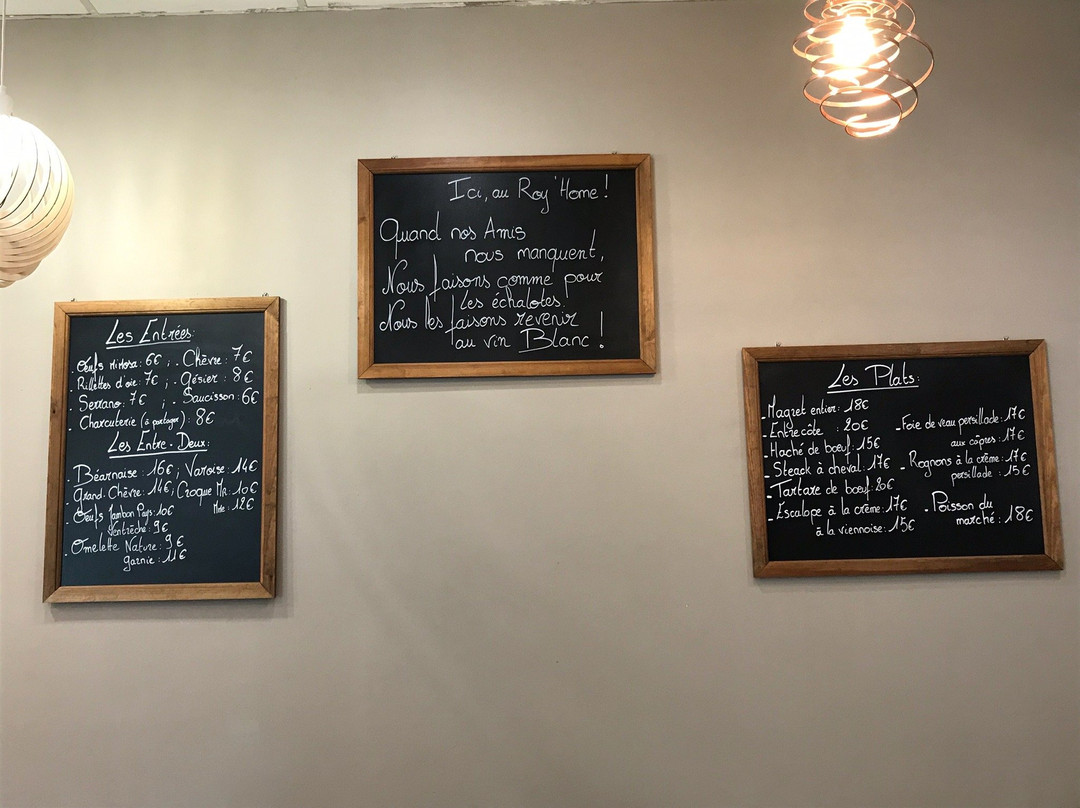 Les Entrées:
. Oeufs Mimosa: 6€ ; . Chèvre: 7€
. Rillettes d'oie: 7€ ; . Gésier: 8€
. Serrano: 7€ ; . Saucisson: 6€
. Charcuterie (à partager): 8€
Les Entre-Deux:
. Béarnaise: 16€ ; Varoise: 14€
. Grand Chèvre: 14€ ; Croque Mr: 10€
Mme: 12€
. Oeufs Jambon Pays: 10€
Ventrèche: 9€
. Omelette Nature: 9€
garnie: 11€
Ici, au Roy'Home!
Quand nos Amis
nous manquent,
Nous faisons comme pour
les échalotes.
Nous les faisons revenir
au vin Blanc!
Les Plats:
- Magret entier: 18€
- Entrecôte : 20€
- Haché de boeuf: 15€
- Steack à cheval: 17€
- Tartare de boeuf: 20€
- Escalope à la crème: 17€
à la viennoise: 15€
- Foie de veau persillade: 17€
aux câpres: 17€
- Rognons à la crème: 17€
persillade : 15€
- Poisson du
marché: 18€